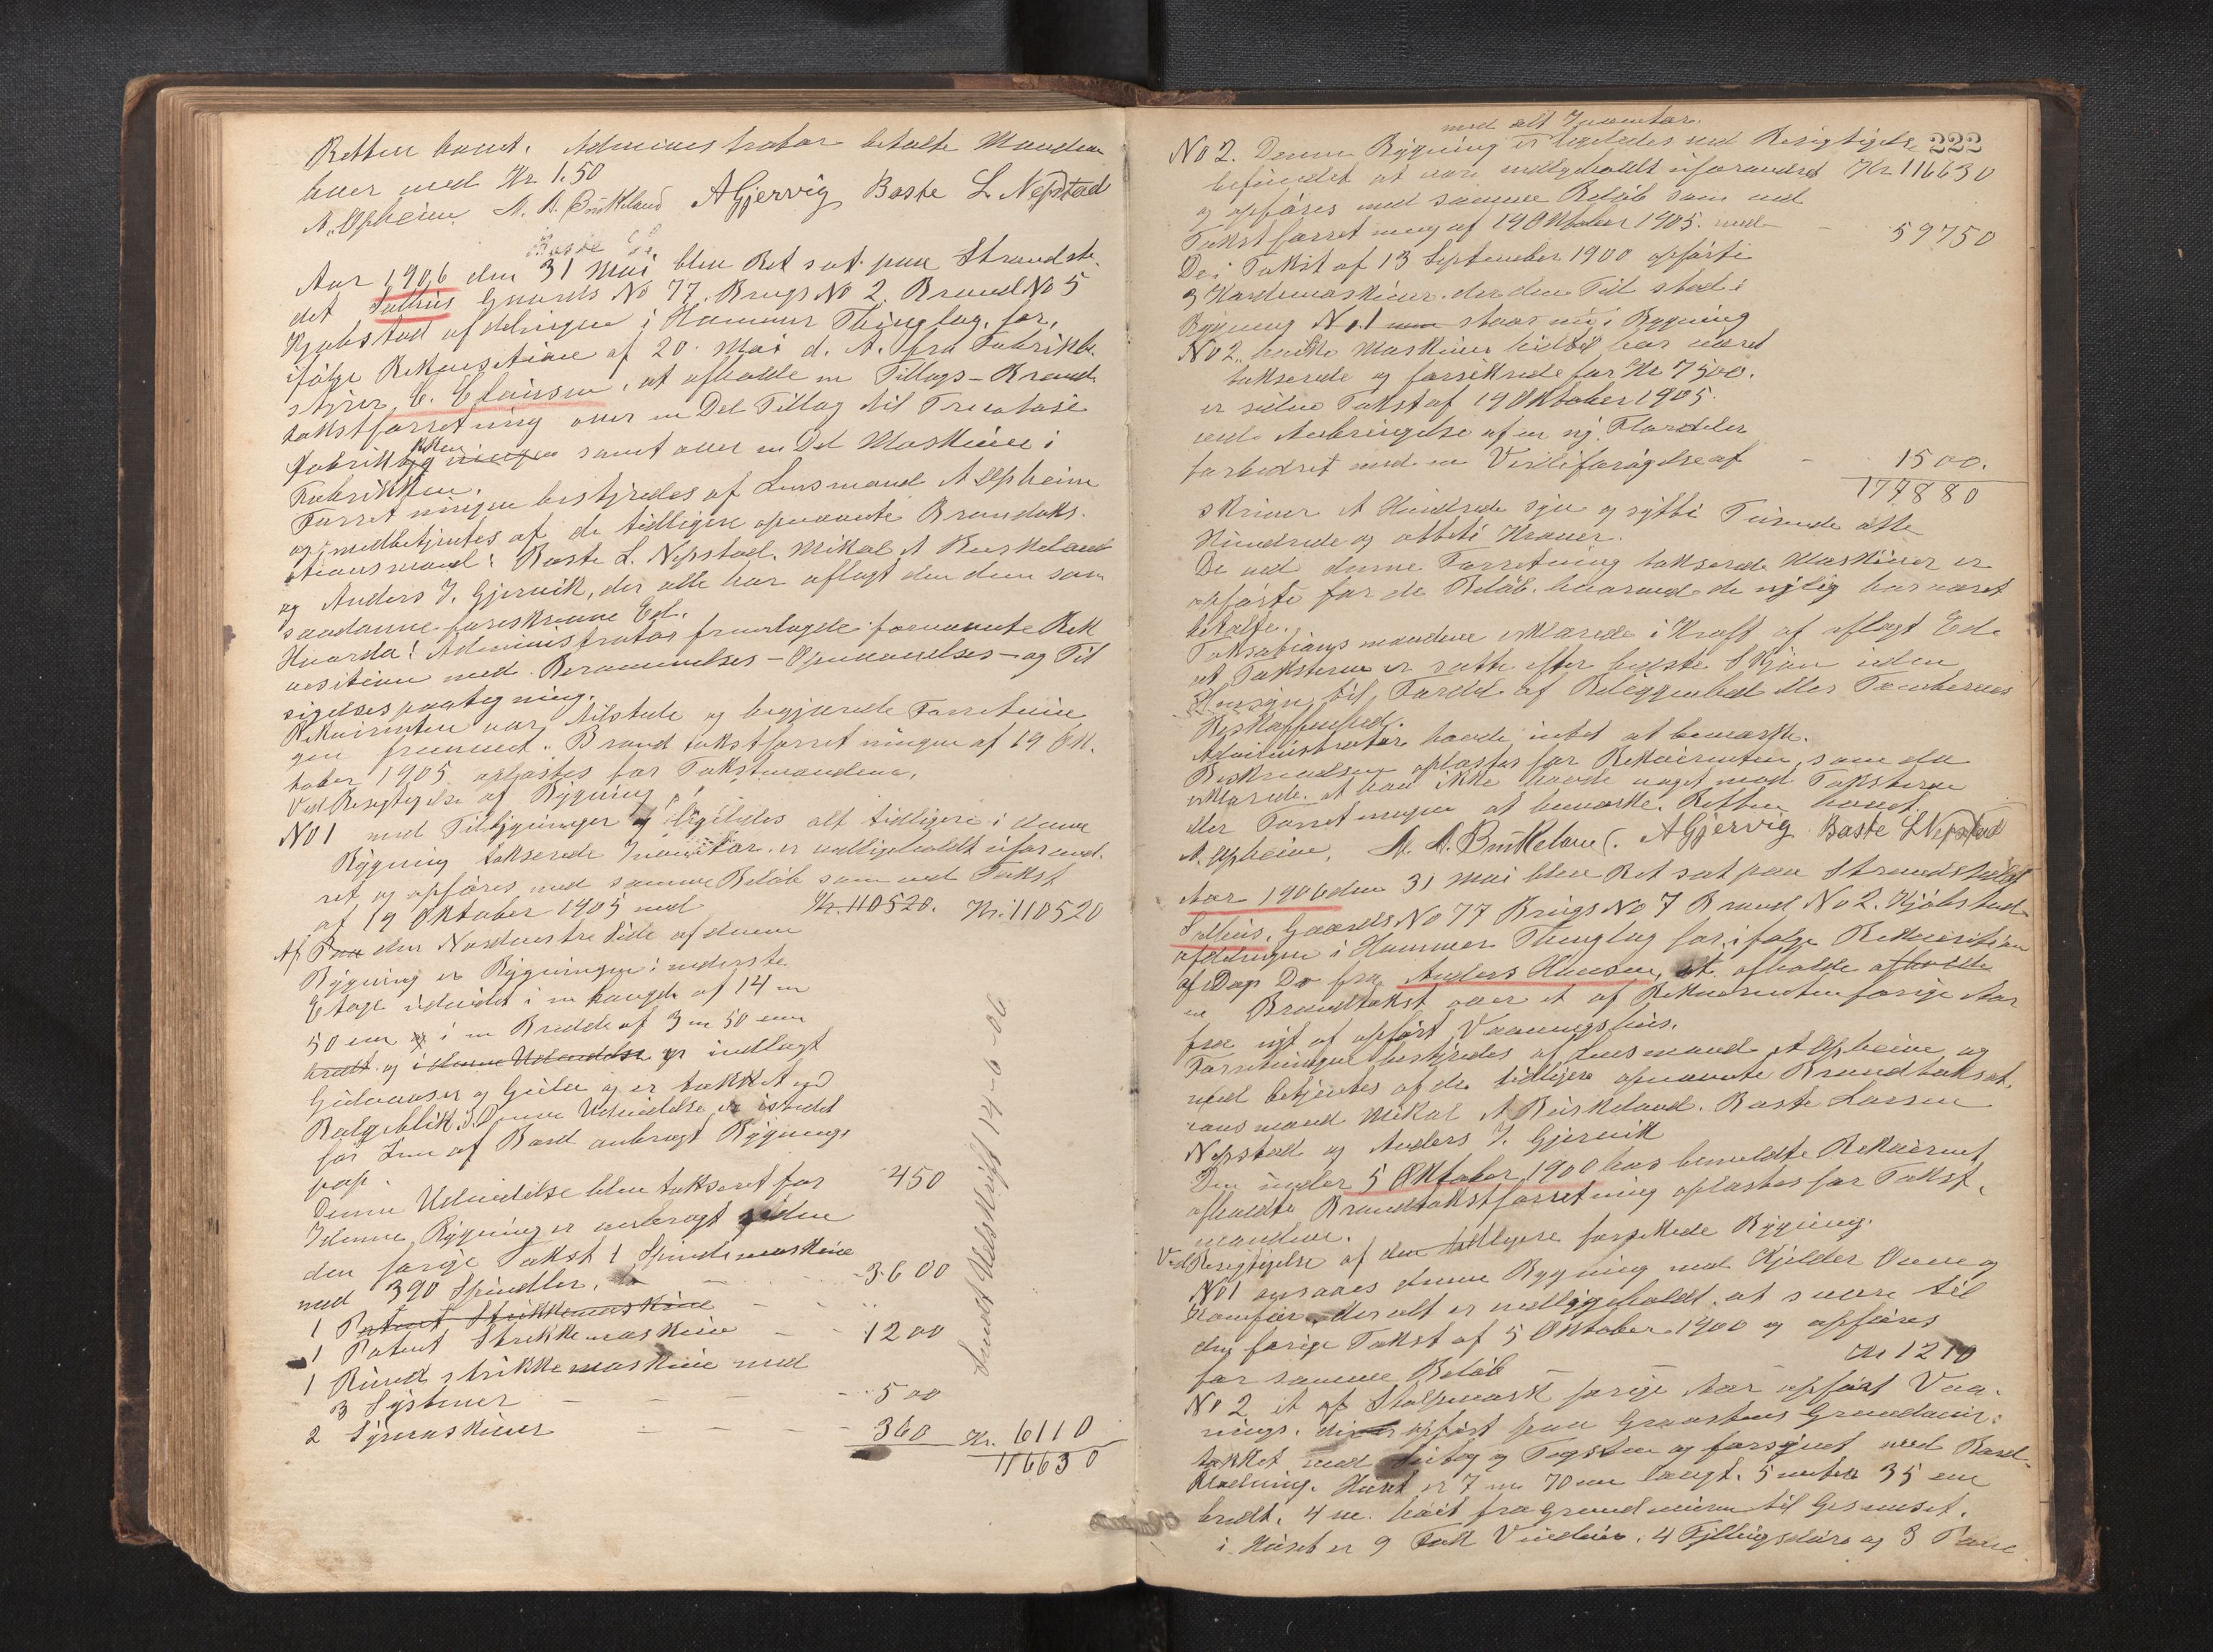 Retten hævet. Administrator betalte Mændene
hver med Kr 1.50
A. Opheim M. A. Bruskeland AGjervig Baste L Nepstad
Aar 1906 den 31 Mai blev Ret sat paa Strandste-
det Salhus Gaards No 77. Brugs No 2. Brand No 5
Kjøbstad afdelingen i Hammer Thinglag, for,
ifølge Rekvisition af 20 Mai d. A. fra Fabrikbe-
styrer C. Clausen, at afholde en Tillægs-Brand
takstforretning over en Del Tillæg til Tricotage
Fabrikbygningen samt over en Del Maskiner i
Fabrikken.
Forretningen bestyredes af Lensmand A Opheim
og medbetjentes af de tidligere opnævnte Brandtaks-
ationsmænd: Baste L. Nepstad. Mikal A Bruskeland
og Anders J. Gjervik, der alle har aflagt den dem som
saadanne foreskrevne Ed.
Hvorda! Administrator fremlagde foenævnte Rek
visition med Berammelses-Opnævnelses- og Til
sigelsespaategning.
Rekvirenten var tilstede og begjærede Forretnin
gen fremmet. Brandtakstforretningen af 19 Ok-
tober 1905 oplæstes for Takstmændene.
Ved Besigtigelse af Bygning
No 1 med Tilbygninger og ligeledes alt tidligere i denne
Bygning takserede Inventar er vedligeholdt uforand-
ret og opføres med samme Beløb som ved Takst
af 19 Oktober 1905 med Kr. 110520. Kr. 110520
Af Paa den Nordvestre Side af denne
Bygning er Bygningen i nederste
Etage udvidet i en Længde af 14 m
50 cm og i en Bredde af 3 m 50 cm
bredt og i denne Udvidelse er indlagt
Gulvaaser og Gulv og er tækket med
Bølgeblik. I Denne Udvidelse er istedet
for Inn af Bord anbragt Bygnings
pap.
Denne Udvidelse blev takseret for 450
I denne Bygning er anbragt siden
den forrige Takst 1 Spindemaskine
med 390 Spindler. - 3600
1 Patent Strikkemaskine
1 Patent Strikkemaskine - 1200
1 Rund strikkemaskine med
3 Systemer - 500
2 Symaskiner - 360 Kr. 6110
116630
Sendt Udskrift 14-6-06
222
med alt Inventar.
No 2. Denne Bygning er ligeledes ved Besigtigelse
befundet at være vedligeholdt uforandret Kr 116630
og opføres med samme Beløb som ved
Takstforretning af 19 Oktober 1905. med - 59750
De i Takst af 13 September 1900 opførte
3 Kardemaskiner. der den Tid stod i
Bygning No. 1 staar nu i Bygning
No 2. hvilke Maskiner hidtil har været
takserede og forsikrede for Kr 7500.
er siden Takst af 19 Oktober 1905.
ved Anbringelse af en ny
forbedret med en Værdiforøgelse af - 1500.
177880
skriver Et Hundrede syv og sytti Tusende otte
Hundrede og otteti Kroner.
De ved denne Forretning takserede Maskiner er
opførte for de Beløb, hvormed de nylig har været
betalte.
Taksationsmændene erklærede i Kraft af aflagt Ed
at Taksterne er satte efter bedste Skjøn uden
Hensyn til Fordel af Beliggenhed eller Tomternes
Beskaffenhed.
Administrator havde intet at bemærke.
Beskrivelsen oplæstes for Rekvirenten, som da
erklærede. at han ikke havde noget mod Taksterne
eller Forretningen at bemærke. Retten hævet.
A. Opheim. M. A. Bruskeland. AGjervig Baste LNepstad
Aar 1906 den 31 Mai blev Ret sat paa Strandstedet
Salhus. Gaards No 77 Brugs No 7 Brand No 2. Kjøbstad-
afdelingen i Hammer Thinglag for, ifølge Rekvisition
af Dags Do fra Anders Hansen, at afholde afholde
en Brandtakst over et af Rekvirenten forrige Aar
fra nyt af opført Vaaningshus.
Forretningen bestyredes af Lensmand A Opheim og
med betjentes af de tidligere opnævnte Brandtaksat-
ionsmænd Mikal A Bruskeland. Baste Larsen
Nepstad og Anders J. Gjervik
Den under 5 Oktober 1900 hos bemeldte Rekvirent
afholdte Brandtakstforretning oplæstes for Takst-
mændene.
Ved Besigtigelse af den tidligere forsikrede Bygning.
No 1 ansaaes denne Bygning med Kjelder Ovne og
Komfur der alt er vedligeholdt, at svare til
den forige Takst af 5 Oktober 1900 og opføres
for samme Beløb - Kr 1210
No 2 et af Stolpeværk forige Aar opført Vaa-
nings. der er opført paa Graastens Grundmur:
tækket med Sutag og Tagsten og forsynet med Bord-
klædning. Huset er 7 m 70 cm langt. 5 meter 35 cm
bredt. 4 m. høit fra Grundmuren til Gesimset.
i Huset er 9 Fag Vinduer. 4 Fyllingsdøre og 3